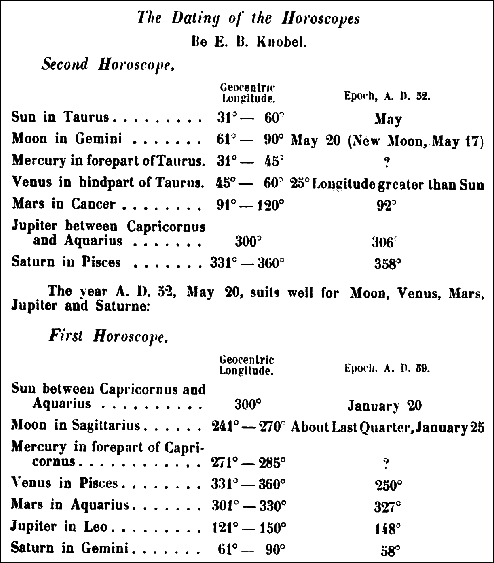 The Dating of the Horoscopes
Be E. B. Knobel.
Second Horoscope.
Geocentric Longitude. Epoch, A. D. 52.
Sun in Taurus . . . . . . . . . 31° — 60° May
Moon in Gemini . . . . . . . 61° — 90° May 20 (New Moon, May 17)
Mercury in forepart of Taurus. 31° — 45° ?
Venus in hindpart of Taurus. 45° — 60° 25° Longitude greater than Sun
Mars in Cancer . . . . . . . . 91° — 120° 92°
Jupiter between Capricornus
and Aquarius . . . . . . . 300° 306°
Saturn in Pisces . . . . . . . 331° — 360° 358°
The year A. D. 52, May 20, suits well for Moon, Venus, Mars,
Jupiter and Saturne:
First Horoscope.
Geocentric Longitude. Epoch, A. D. 59.
Sun between Capricornus and
Aquarius . . . . . . . . . . 300° January 20
Moon in Sagittarius . . . . . . 241° — 270° About Last Quarter, January 25
Mercury in forepart of Capri-
cornus. . . . . . . . . . . . 271° — 285° ?
Venus in Pisces. . . . . . . . . 331° — 360° 250°
Mars in Aquarius. . . . . . . . 301° — 330° 327°
Jupiter in Leo. . . . . . . . . 121° — 150° 148°
Saturn in Gemini. . . . . . . 61° — 90° 58°